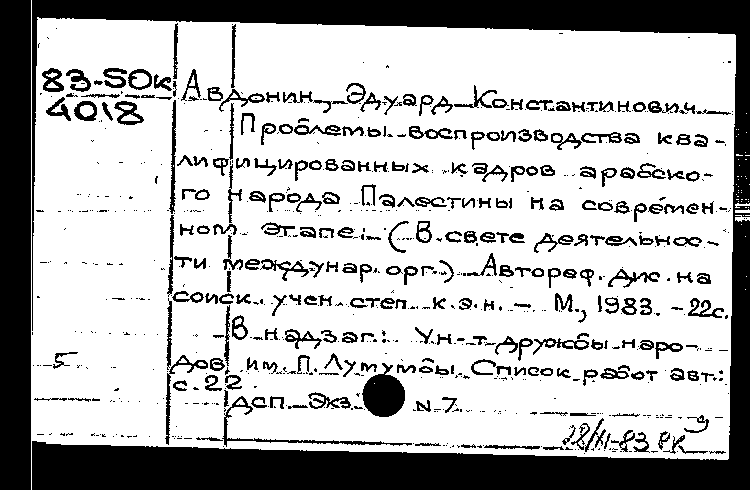 83-50к
4018
Авдонин, Эдуард Константинович.
Проблемы воспроизводства ква-
лифицированных кадров арабско-
го народа Палестины на современ-
ном этапе: (В свете деятельнос-
ти междунар. орг.) Автореф. дис. на
соиск. учен. степ. к.э.н. - М., 1983. - 22с.
В надзаг.: Ун-т дружбы наро-
дов им. П. Лумумбы. Список работ авт.:
с.22
5
ДСП Экз. N 7
83 РК